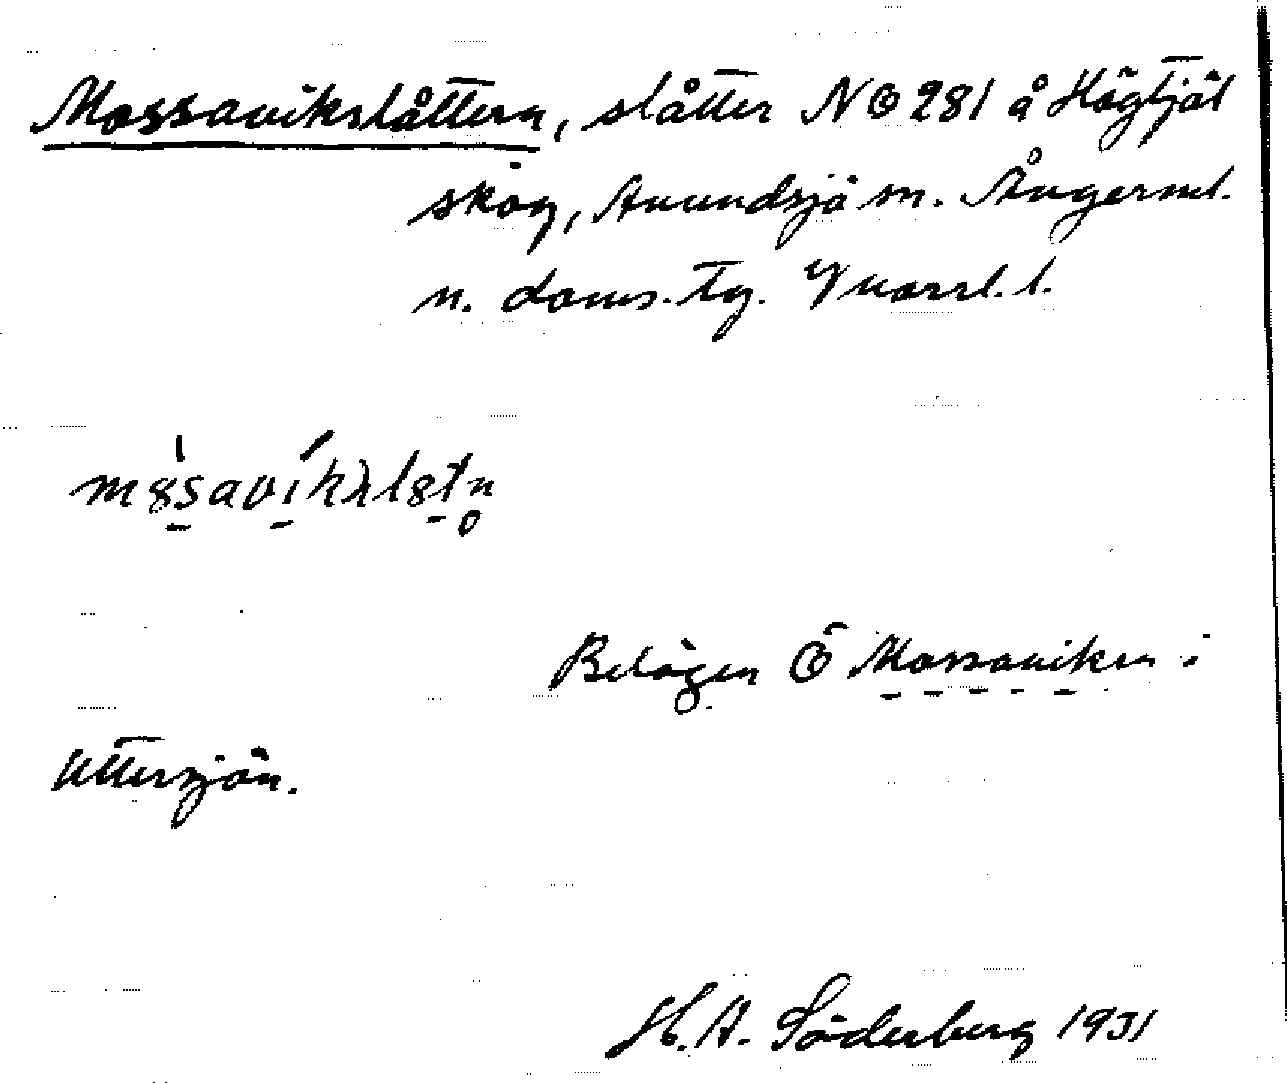 Mossavikslåttern, slåtter NÖ 281 å Högtjäl
skog, Anundsjö sn. Ångerml.
n. doms. Tg. Vnorrl. l.
Belägen Ö Mossaviken i
Uttersjön.
H. A. Söderberg 1931